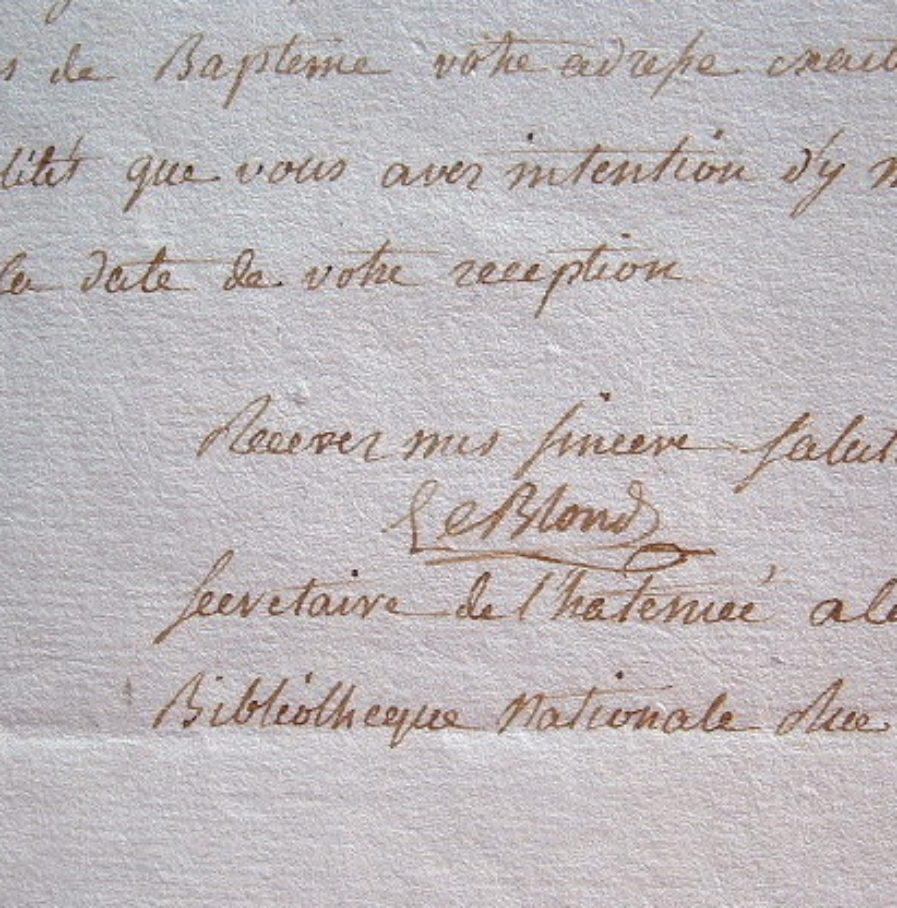 s de Bapteme votre adresse exact
lités que vous avez intention d'y
la date de votre reception
Recevez mes sincere salut
LeBlond
secretaire de l'hatenieé a la
Bibliotheque Nationale Rue